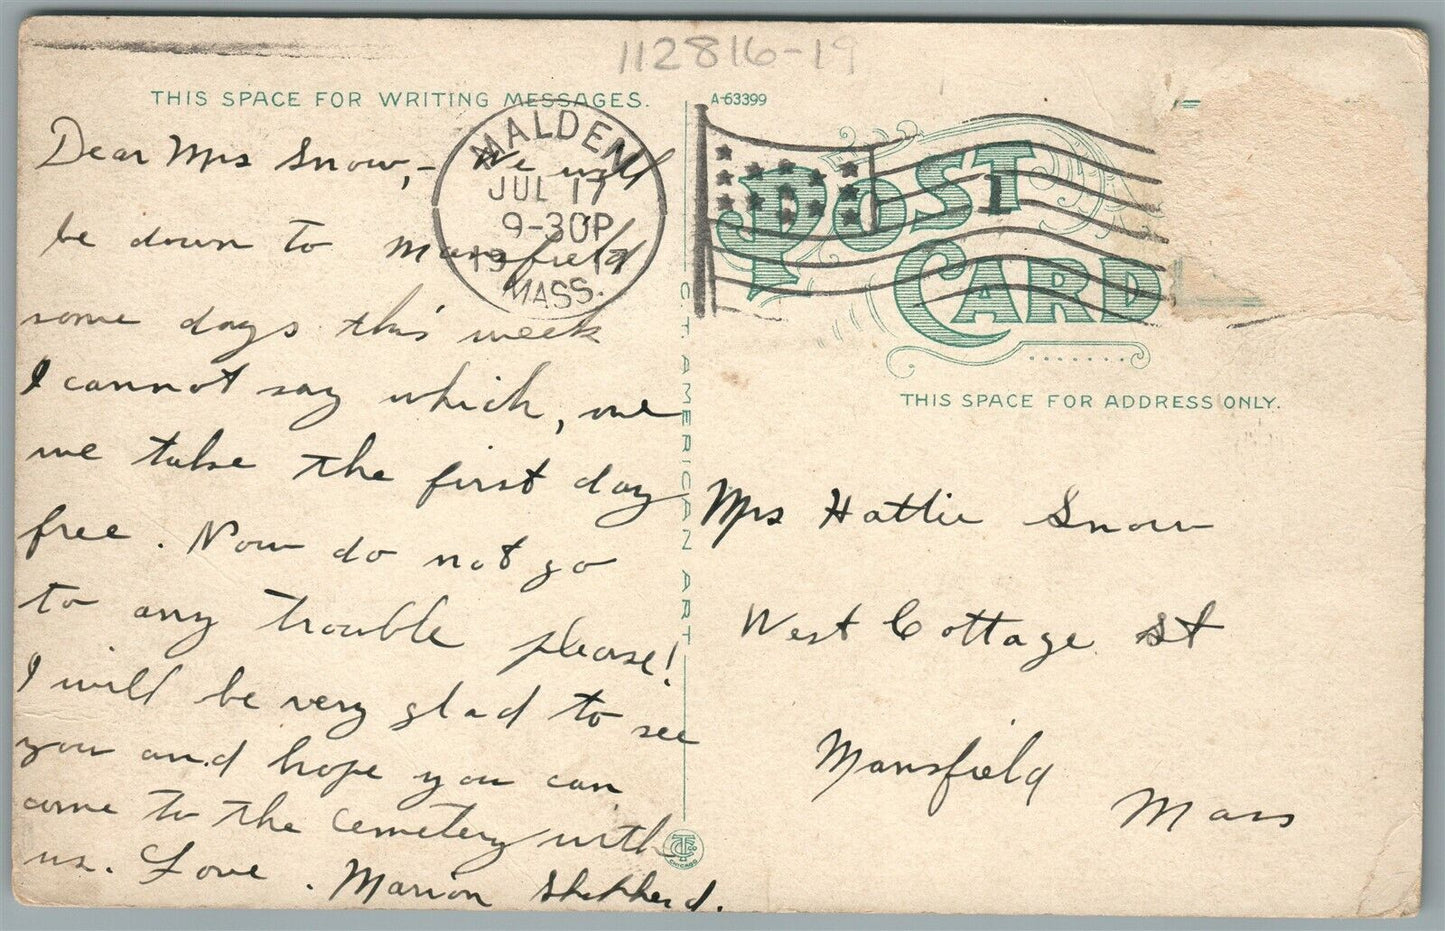 112816-19
THIS SPACE FOR WRITING MESSAGES.
A-63399
MALDEN
JUL 17
9-30P
19 17
MASS.
1
POST
CARD
THIS SPACE FOR ADDRESS ONLY.
Dear Mrs Snow,- We will
be down to Mansfield
some days this week
I cannot say which,
we take the first day
free. Now do not go
to any trouble please!
I will be very glad to see
you and hope you can
come to the cemetery with
us. Love. Marion Shepherd.
C. T. AMERICAN ART
CHICAGO
Mrs Hattie Snow
West Cottage St
Mansfield
Mass